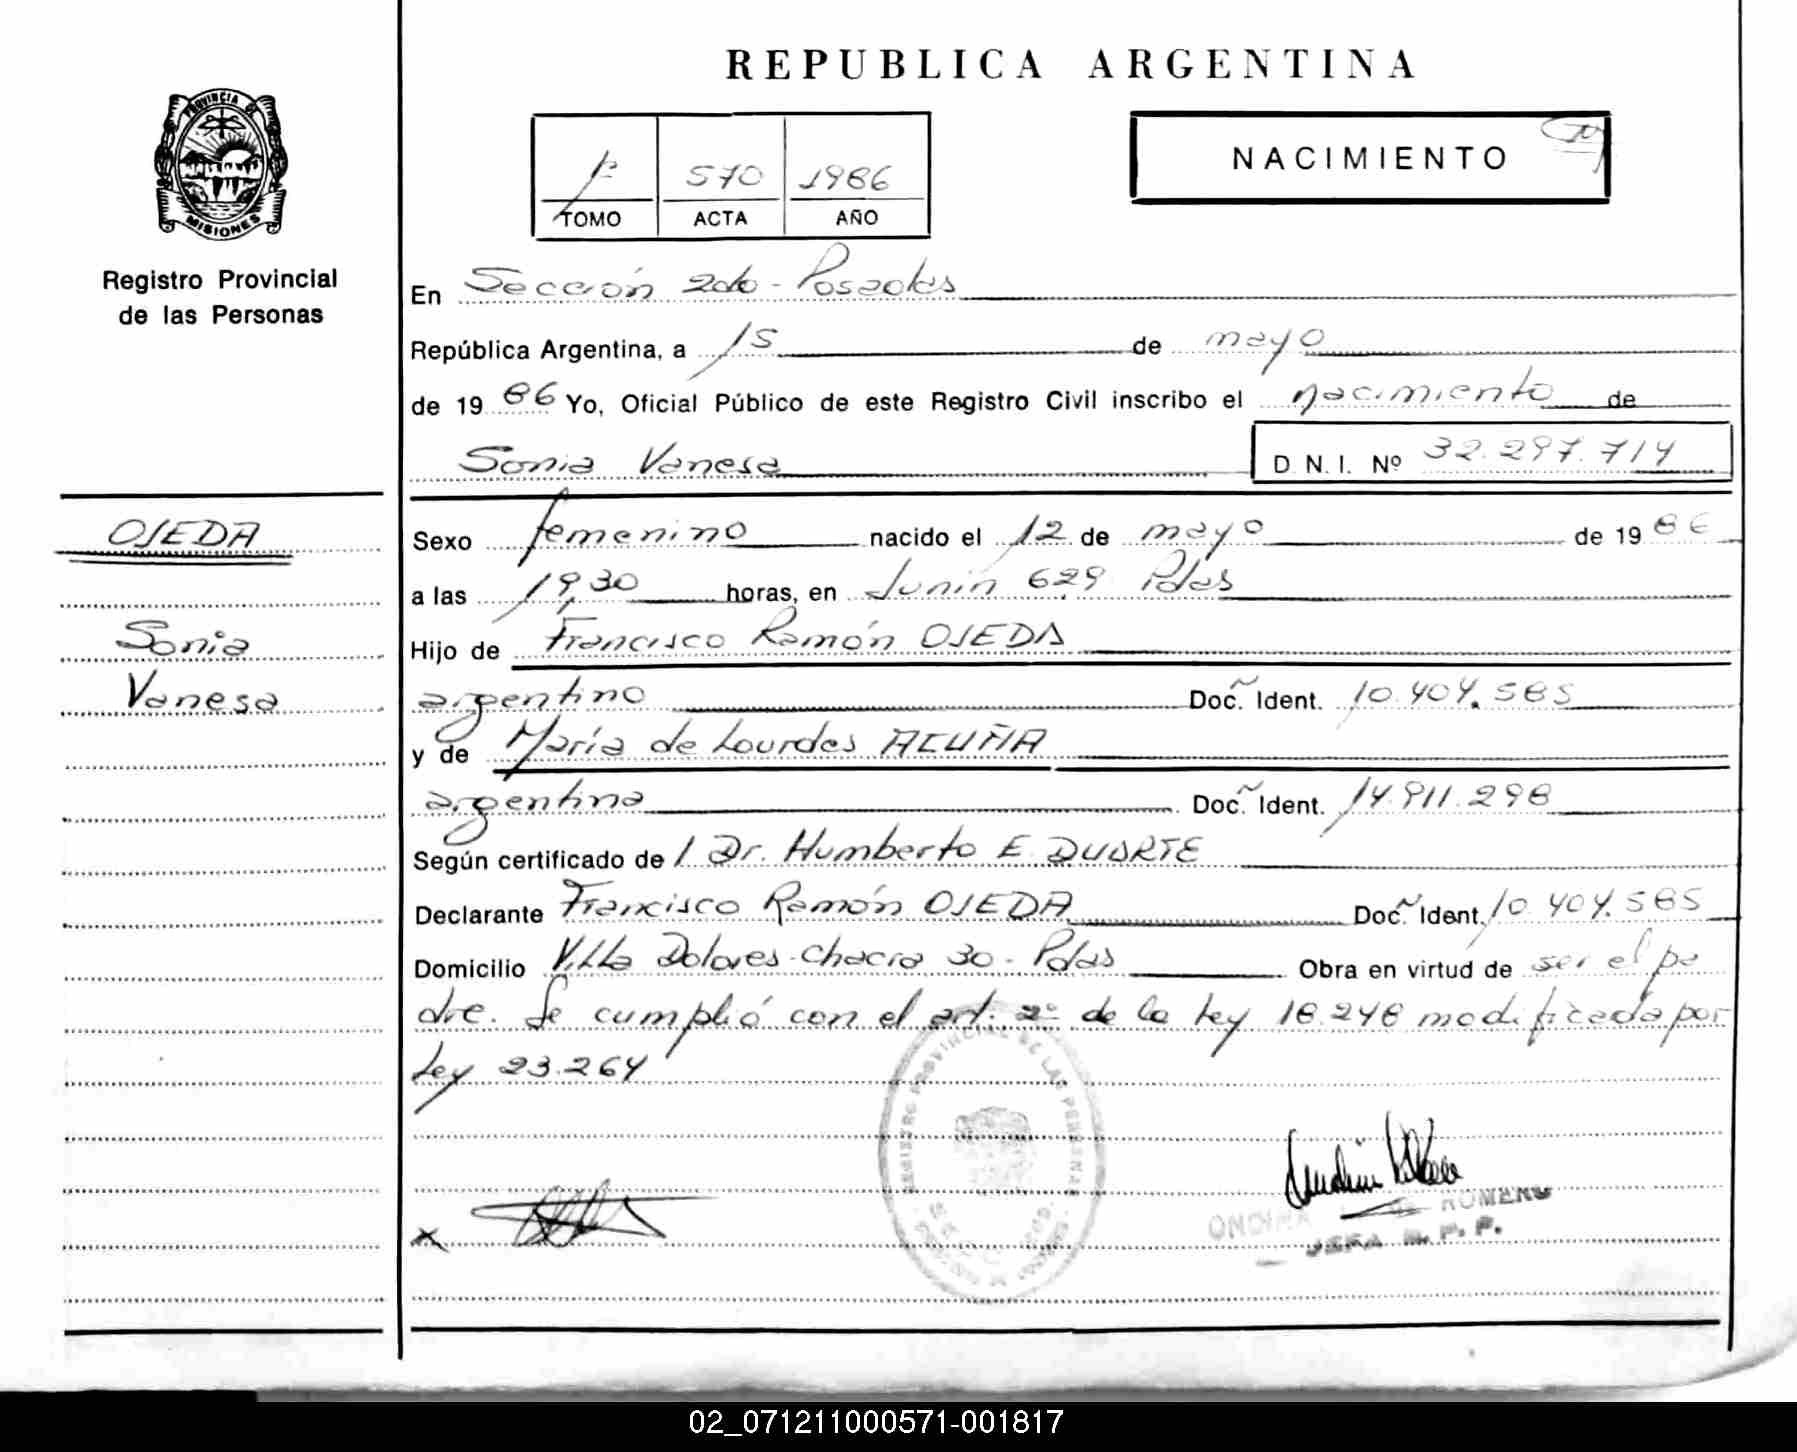 REPUBLICA ARGENTINA
PROVINCIA DE MISIONES
Registro Provincial
de las Personas
TOMO 1º ACTA 570 AÑO 1986
NACIMIENTO
En Sección 2da - Posadas
República Argentina, a 15 de mayo
de 1986 Yo, Oficial Público de este Registro Civil inscribo el nacimiento de
Sonia Vanesa D.N.I. Nº 32.297.714
OJEDA
Sonia
Vanesa
Sexo femenino nacido el 12 de mayo de 1986
a las 19,30 horas, en Junin 629 Pdas
Hijo de Francisco Ramón OJEDA
argentino Doc. Ident. 10.404.585
y de María de Lourdes ACUÑA
argentina Doc. Ident. 14.911.298
Según certificado de / Dr. Humberto E. DUARTE
Declarante Francisco Ramón OJEDA Doc. Ident. 10.404.585
Domicilio Villa Dolores - Chacra 30 - Pdas Obra en virtud de ser el pa
dre. Se cumplió con el art. 2º de la Ley 18.248 modificada por
Ley 23.264
REGISTRO PROVINCIAL DE LAS PERSONAS
x
DE ROMERO
JEFA R. P. P.
02_071211000571-001817